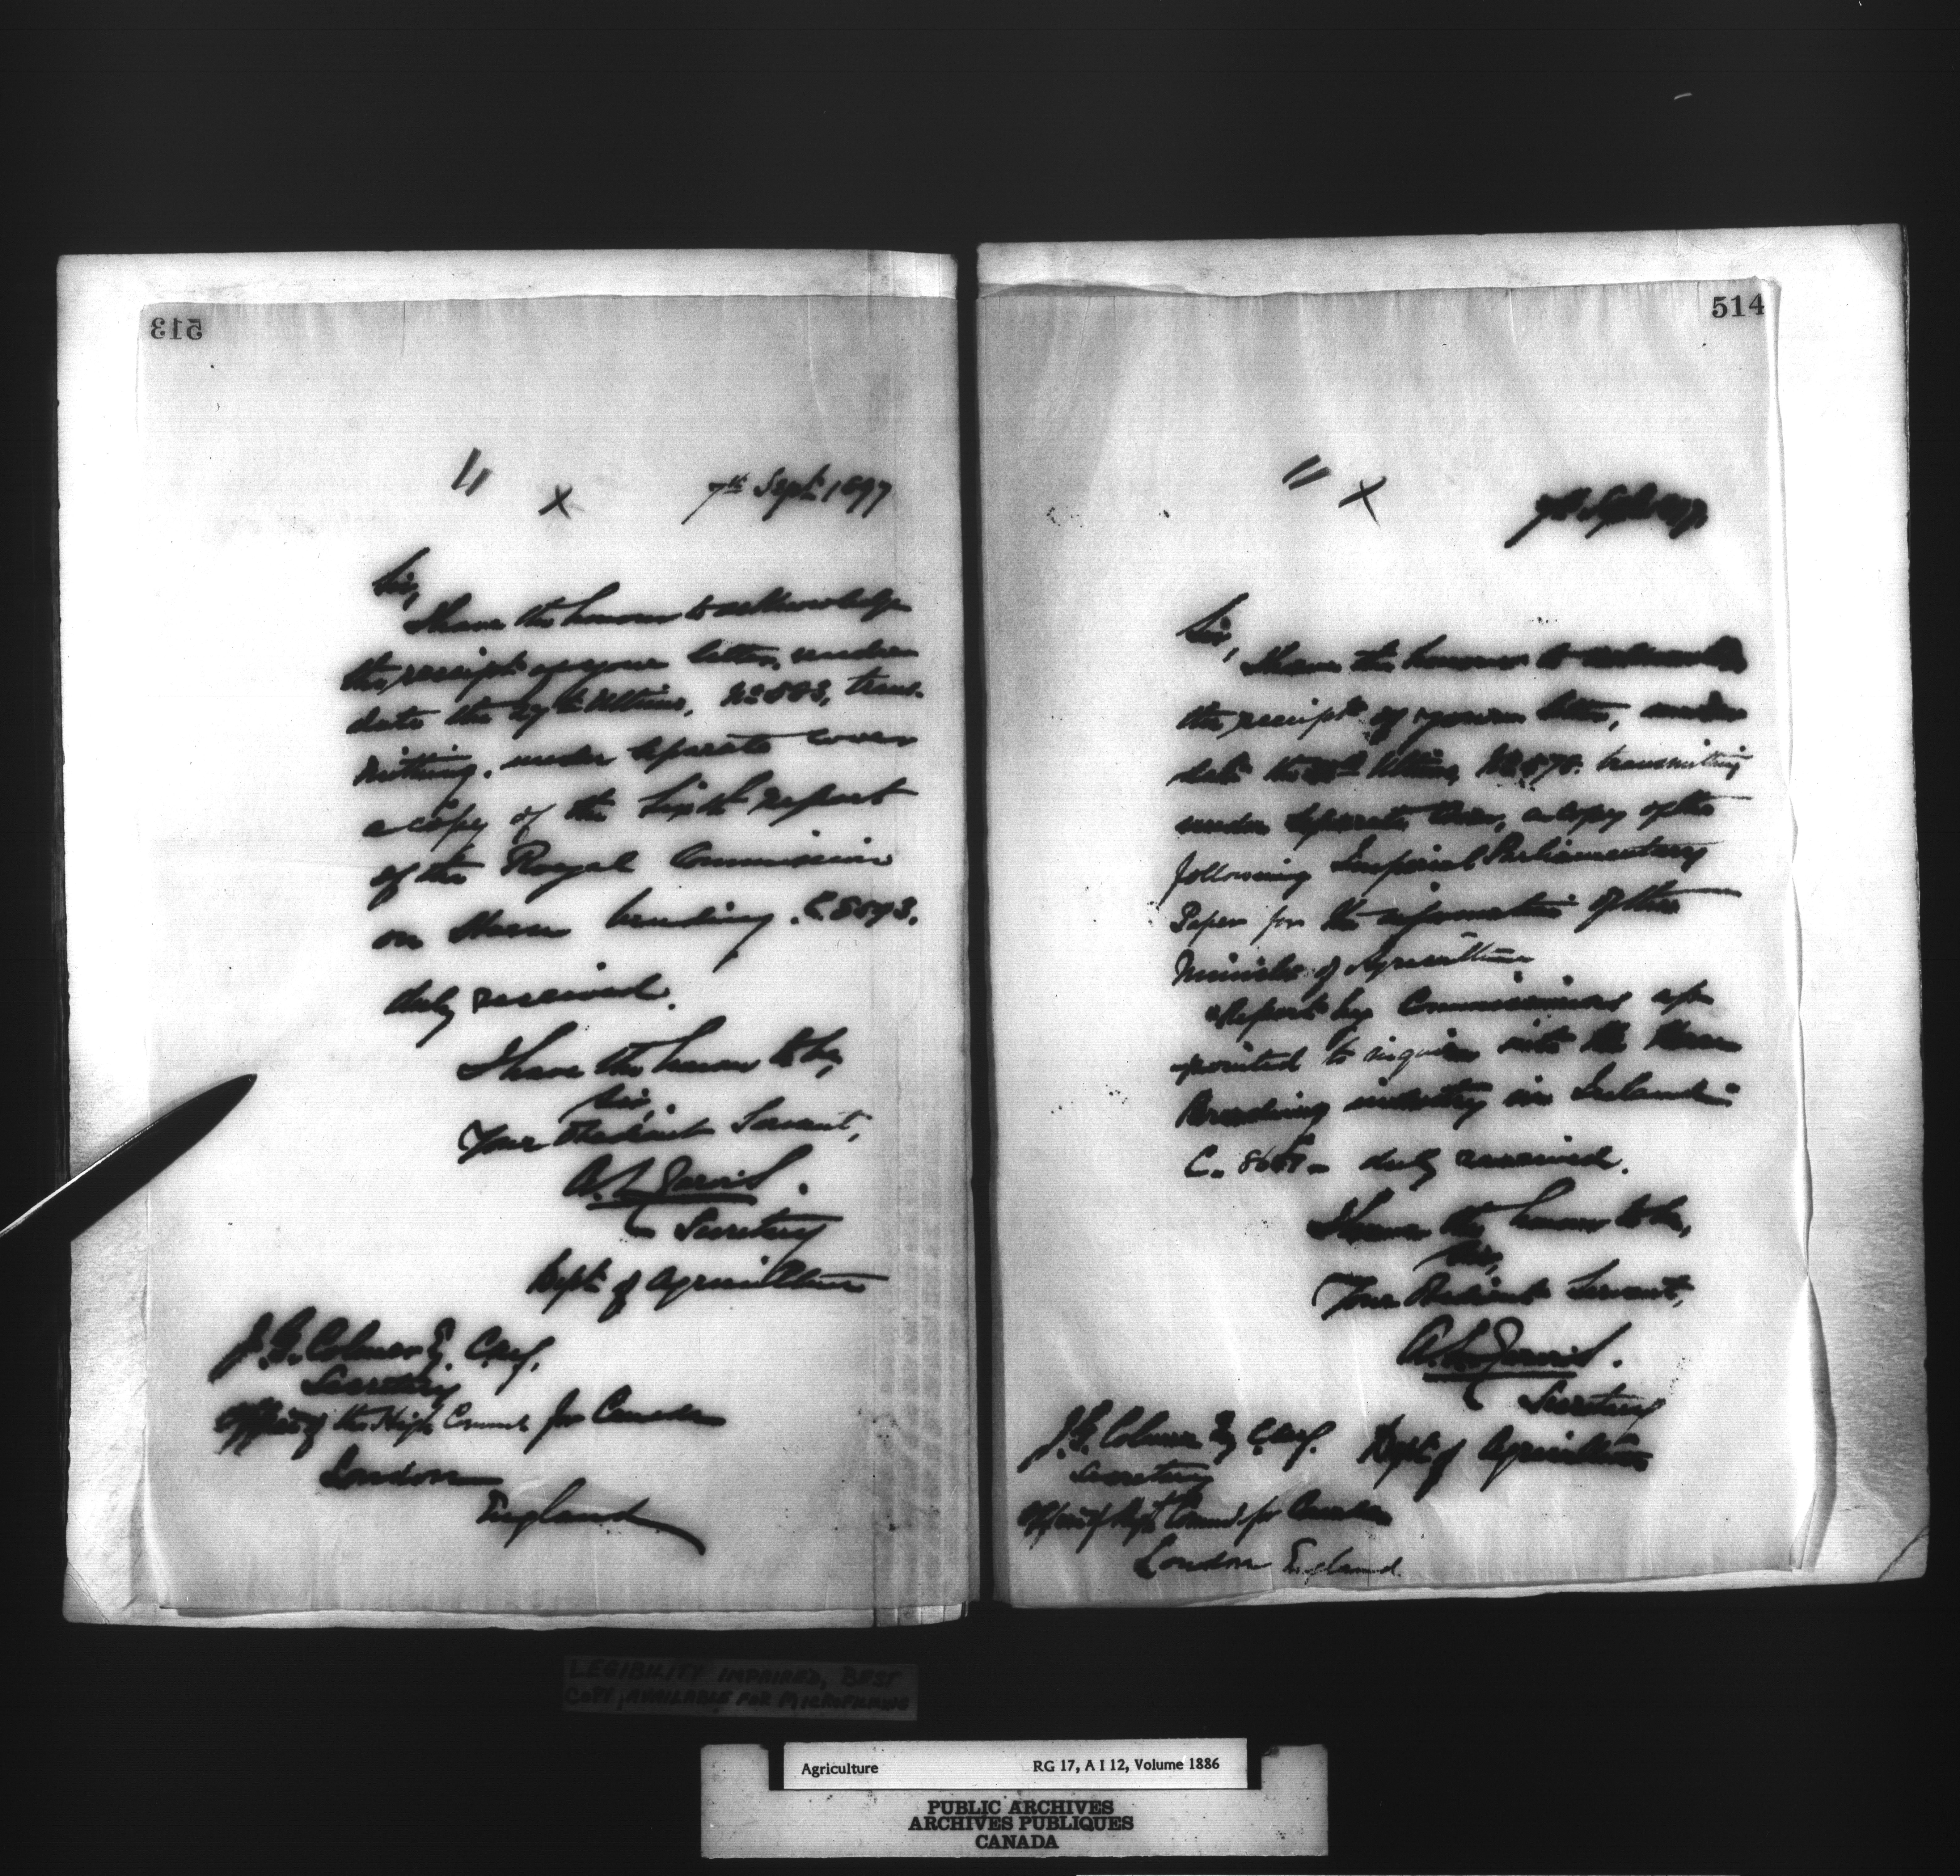 513
" x 7th Sept. 1897
Sir,
I have the honour to acknowledge
the receipt of your letter, under
date the ultimo, No. 883, trans-
mitting, under separate cover
a copy of the Sixth Report
of the Royal Commission
on Horse breeding. C.8593.
duly received.
I have the honour to be,
Sir,
Your Obedient Servant,
A. L. Jarvis.
Secretary
Dept. of Agriculture
J. G. Colmer Esq. C.M.G.
Secretary
Office of the High Commr. for Canada
London
England
514
" x 7th Sept. 1897
Sir,
I have the honour to acknowledge
the receipt of your letter, under
date the ultimo, No. 878. transmitting
under separate cover, a copy of the
following Imperial Parliamentary
Paper for the information of the
Minister of Agriculture
Report by Commissioners ap-
pointed to inquire into the Horse
Breeding industry in Ireland
C. duly received.
I have the honour to be,
Sir,
Your Obedient Servant,
A. L. Jarvis.
Secretary
Dept. of Agriculture
J. G. Colmer Esq C.M.G.
Secretary
Office of High Commr. for Canada
London England.
LEGIBILITY IMPAIRED, BEST
COPY AVAILABLE FOR MICROFILMING
Agriculture RG 17, A I 12, Volume 1886
PUBLIC ARCHIVES
ARCHIVES PUBLIQUES
CANADA